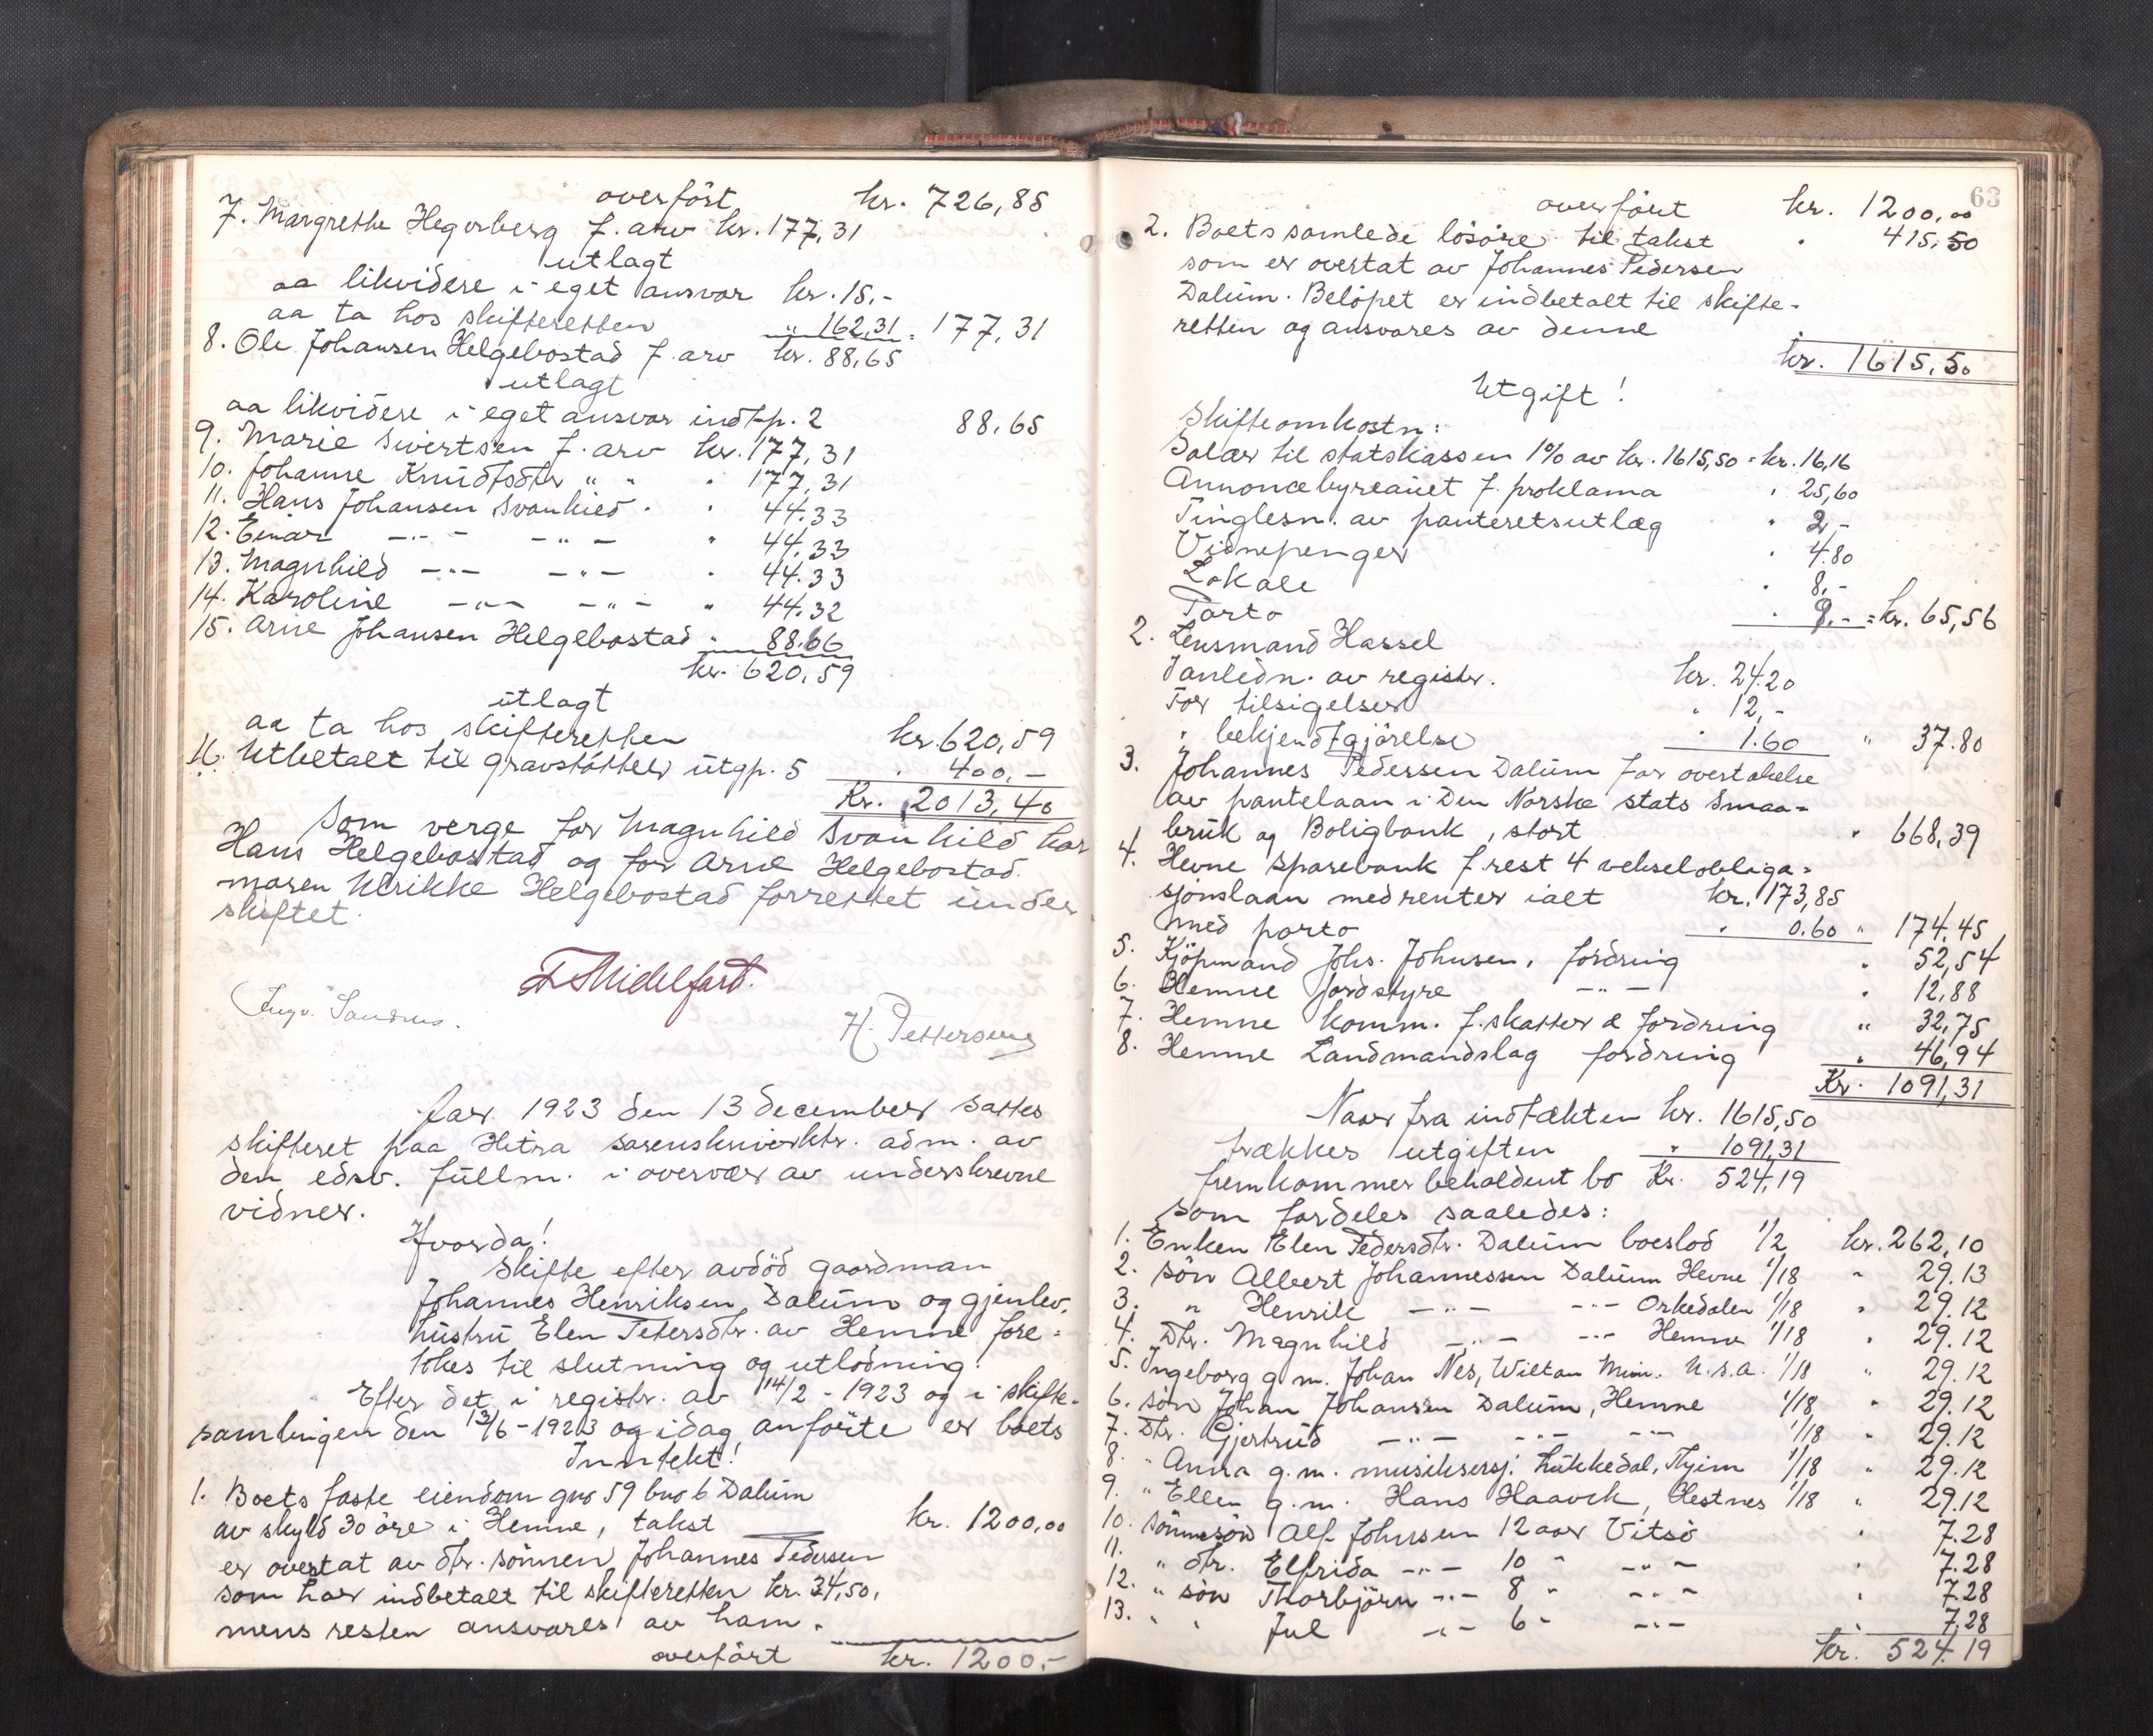 overført kr. 726,85
7. Margrethe Hegerberg f. arv kr. 177,31
utlagt
aa likvidere i eget ansvar kr. 15.-
aa ta hos skifteretten " 162,31 = 177,31
8. Ole Johansen Helgebostad f. arv kr. 88,65
utlagt
aa likvidere i eget ansvar indtp. 2 88.65
9. Marie Sivertsen f. arv kr. 177,31
10. Johanne Knudtsdtr " " " 177,31
11. Hans Johansen Svanhild " " 44.33
12. Einar -"- -"- " 44,33
13. Magnhild -"- -"- " 44.33
14. Karoline -"- -"- " 44.32
15. Arne Johansen Helgebostad " 88.66
kr. 620,59
utlagt
aa ta hos skifteretten kr. 620,59
16. Utbetalt til gravstötter utgp. 5 " 400,-
Kr. 2013,40
Som verge for Magnhild Svanhild har
Hans Helgebostad og for Arne Helgebostad
moren Ulrikke Helgebostad forrettet under
skiftet.
Midelfart.
H. Pettersen
Aar 1923 den 13 december sattes
skifteret paa Hitra sorenskriverktr. adm. av
den edsv. fullm. i overvær av underskrevne
vidner.
Hvorda!
Skifte efter avdöd gaardman
Johannes Henriksen Dalum og gjenlev.
hustru Elen Petersdtr. av Hemne fore=
tokes til slutning og utlodning.
Efter det i registr. av 14/2 - 1923 og i skifte-
samlingen den 13/6 - 1923 og idag anförte er boets
Inntekt!
1. Boets faste eiendom gno 59 bno 6 Dalum
av skyld 30 öre i Hemne, takst kr. 1200,00
er overtat av dtr. sönnen Johannes Pedersen
som har indbetalt til skifteretten kr. 34,50,
mens resten ansvares av ham.
overfört kr. 1200.-
63
overfört kr. 1200,00
2. Boets samlede lösöre til takst " 415,50
som er overtat av Johannes Pedersen
Dalum. Belöpet er indbetalt til skifte-
retten og ansvares av denne
kr. 1615,50
Utgift!
Skifteomkostn:
Salær til statskassen 1% av kr. 1615,50 = kr. 16,16
Annoncebyreauet f. proklama " 25,60
Tinglesn. av panteretsutlæg " 2,-
Vidnepenger " 4.80
Lokale " 8,-
Porto " 9.- = kr. 65,56
2. Lensmand Hassel
I anledn. av registr. kr. 24.20
For tilsigelser " 12,-
" bekjendtgjörelse " 1.60 " 37.80
3. Johannes Pedersen Dalum for overtakelse
av pantelaan i Den Norske stats Smaa=
bruk og Boligbank, stort " 668,39
4. Hevne Sparebank f. rest 4 vekselobliga=
sjonslaan med renter ialt kr. 173,85
med porto " 0.60 " 174.45
5. Kjöpmand Johs. Johnsen, fordring " 52,54
6. Hemne Jordstyre -"- " 12,88
7. Hemne komm. f. skatter & fordring " 32,75
8. Hemne Landmandslag fordring " 46,94
Kr. 1091,31
Naar fra indtækten kr. 1615,50
trækkes utgiften " 1091,31
fremkommer beholdent bo Kr. 524,19
som fordeles saaledes:
1. Enken Elen Pedersdtr. Dalum boeslod 1/2 kr. 262,10
2. sön Albert Johannessen Dalum Hevne 1/18 " 29.13
3. " Henrik -"- -"- Orkedalen 1/18 " 29.12
4. Dtr. Magnhild -"- -"- Hemne 1/18 " 29.12
5. Ingeborg g. m. Johan Nes, Wiltan Minn. U.S.A. 1/18 " 29.12
6. sön Johan Johansen Dalum, Hemne 1/18 " 29.12
7. Dtr. Gjertrud -"- -"- -"- 1/18 " 29.12
8. " Anna g. m. musiksersj. Lükkedal, Thjem 1/18 " 29.12
9. " Ellen g. m. Hans Haavik, Hestnes 1/18 " 29.12
10. sönnesön Alf Johnsen 12 aar Vitsö " 7.28
11. " dtr. Elfrida -"- 10 " -"- " 7.28
12. " sön Thorbjörn -"- 8 " -"- " 7.28
13. " " Jul -"- 6 " -"- " 7,28
kr. 524.19